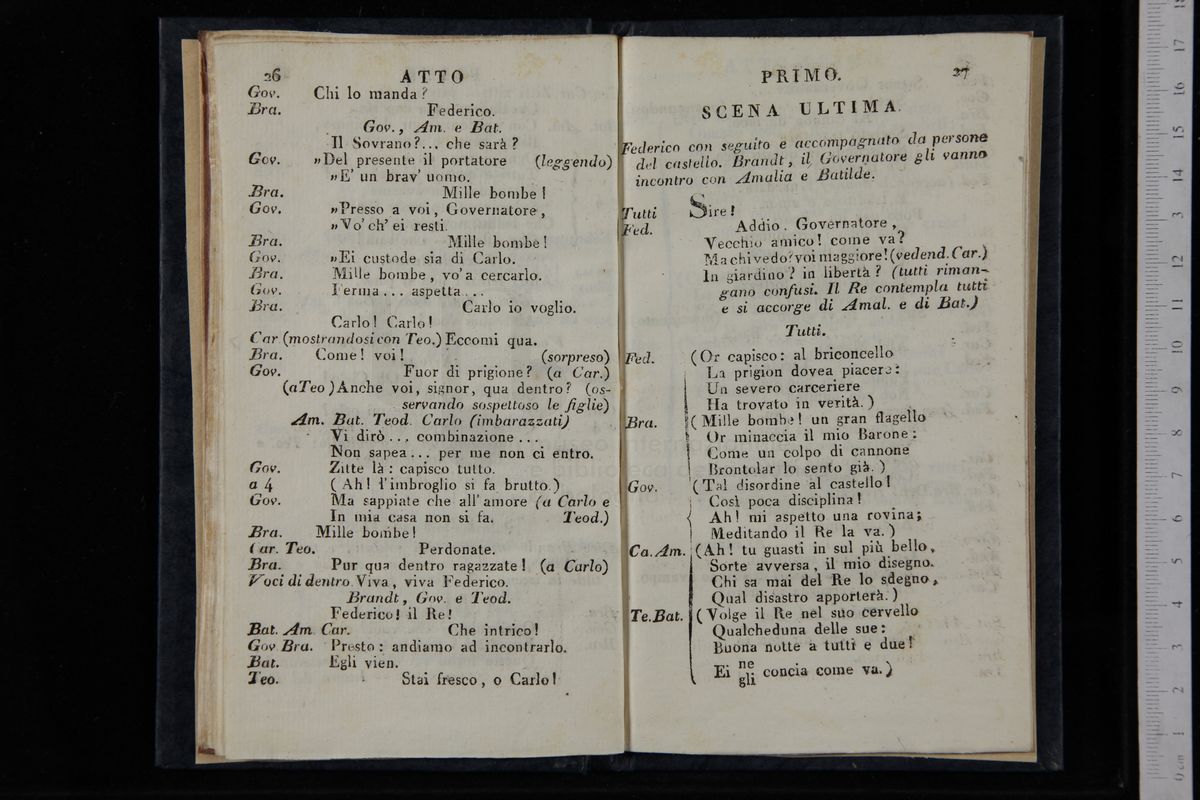 26 ATTO
Gov. Chi lo manda?
Bra. Federico.
Gov., Am. e Bat.
Il Sovrano?... che sarà?
Gov. »Del presente il portatore (leggendo)
»E' un brav' uomo.
Bra. Mille bombe!
Gov. »Presso a voi, Governatore,
»Vo' ch' ei resti.
Bra. Mille bombe!
Gov. »Ei custode sia di Carlo.
Bra. Mille bombe, vo' a cercarlo.
Gov. Ferma... aspetta...
Bra. Carlo io voglio.
Carlo! Carlo!
Car (mostrandosi con Teo.) Eccomi qua.
Bra. Come! voi! (sorpreso)
Gov. Fuor di prigione? (a Car.)
(a Teo) Anche voi, signor, qua dentro? (os-
servando sospettoso le figlie)
Am. Bat. Teod. Carlo (imbarazzati)
Vi dirò... combinazione...
Non sapea... per me non ci entro.
Gov. Zitte là: capisco tutto.
a 4 (Ah! l'imbroglio si fa brutto.)
Gov. Ma sappiate che all' amore (a Carlo e
In mia casa non si fa. Teod.)
Bra. Mille bombe!
Car. Teo. Perdonate.
Bra. Pur qua dentro ragazzate! (a Carlo)
Voci di dentro Viva, viva Federico.
Brandt, Gov. e Teod.
Federico! il Re!
Bat. Am. Car. Che intrico!
Gov. Bra. Presto: andiamo ad incontrarlo.
Bat. Egli vien.
Teo. Stai fresco, o Carlo!
PRIMO. 27
SCENA ULTIMA.
Federico con seguito e accompagnato da persone
del castello. Brandt, il Governatore gli vanno
incontro con Amalia e Batilde.
Tutti Sire!
Fed. Addio. Governatore,
Vecchio amico! come va?
Ma chi vedo! voi maggiore! (vedend. Car.)
In giardino? in libertà? (tutti riman-
gano confusi. Il Re contempla tutti
e si accorge di Amal. e di Bat.)
Tutti.
Fed. (Or capisco: al briconcello
La prigion dovea piacere:
Un severo carceriere
Ha trovato in verità.)
Bra. (Mille bombe! un gran flagello
Or minaccia il mio Barone:
Come un colpo di cannone
Brontolar lo sento già.)
Gov. (Tal disordine al castello!
Così poca disciplina!
Ah! mi aspetto una rovina;
Meditando il Re la va.)
Ca. Am. (Ah! tu guasti in sul più bello,
Sorte avversa, il mio disegno.
Chi sa mai del Re lo sdegno,
Qual disastro apporterà.)
Te. Bat. (Volge il Re nel suo cervello
Qualcheduna delle sue:
Buona notte a tutti e due!
Ei ne
gli concia come va.)